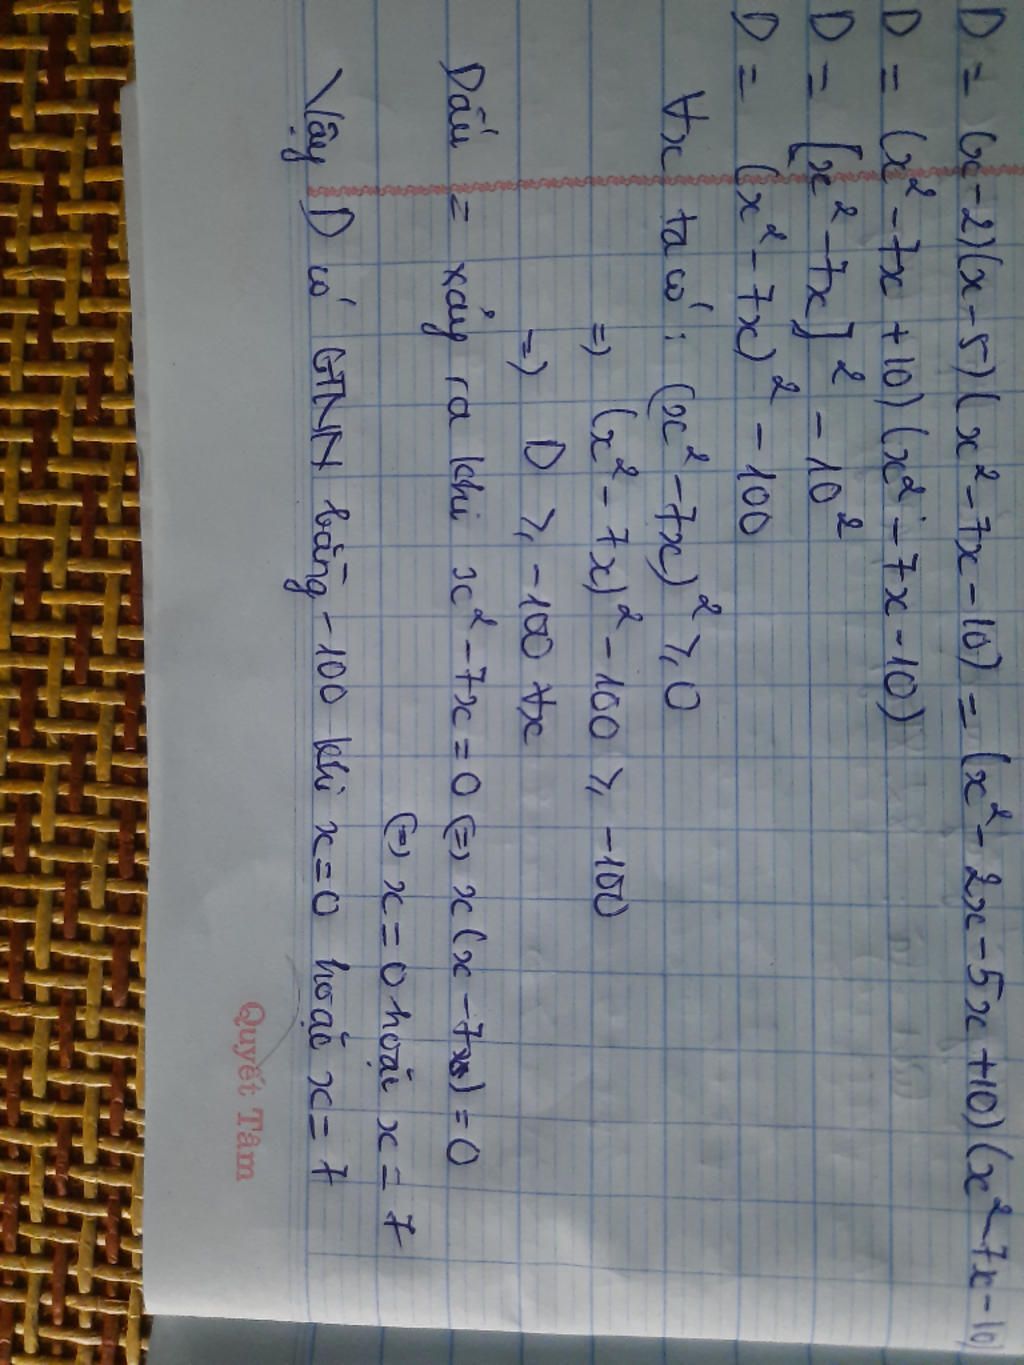 D = (x-2)(x-5)(x²-7x-10) = (x²-2x-5x+10)(x²-7x-10)
D = (x²-7x+10)(x²-7x-10)
D = [x²-7x]² - 10²
D = (x²-7x)² - 100
∀x ta có: (x²-7x)² ≥ 0
=) (x²-7x)² - 100 ≥ -100
=) D ≥ -100 ∀x
Dấu = xảy ra khi x²-7x=0 (=) x(x-7)=0
(=) x=0 hoặc x=7
Vậy D có GTNN bằng -100 khi x=0 hoặc x=7
Quyết Tâm